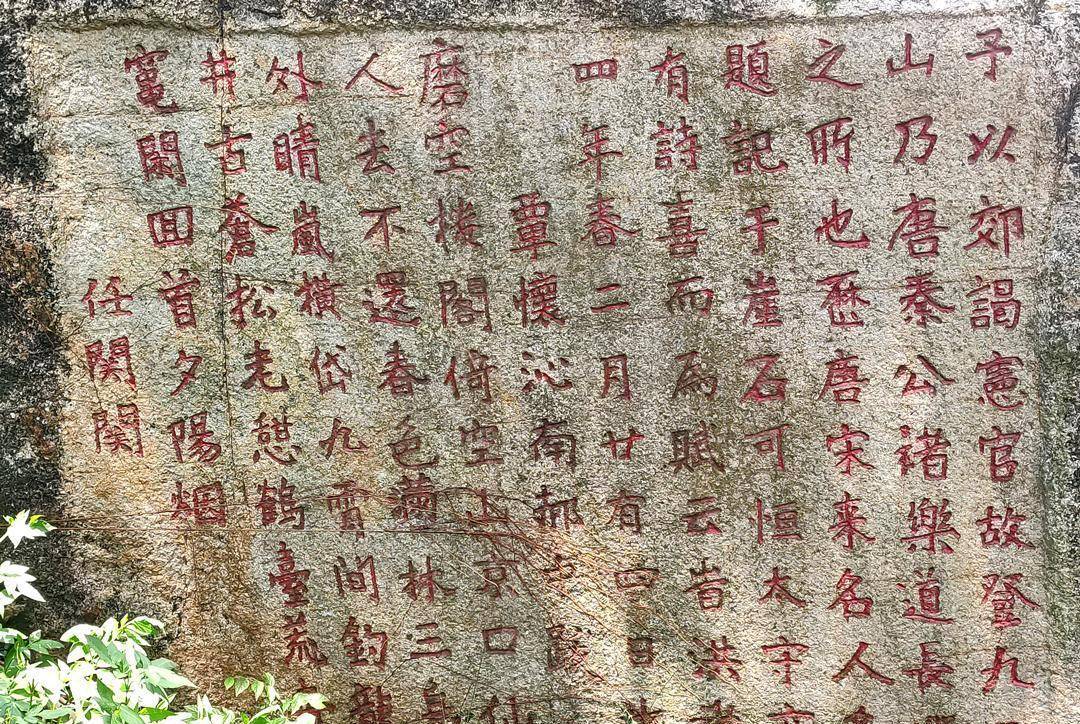 予以郊謁憲官故登九
山乃唐秦公褚樂道長
之所也歷唐宋来名人
題記于崖石可恒太守
有詩喜而為賦云昔洪
四年春二月廿有四日
覃懷沁南郝
磨空楼閣倚空山京口
人去不還春色滿林三
外晴嵐橫岱九霄間鈞龍
井古蒼松老憩鶴臺荒
竈閑囬首夕陽烟
任閑閑